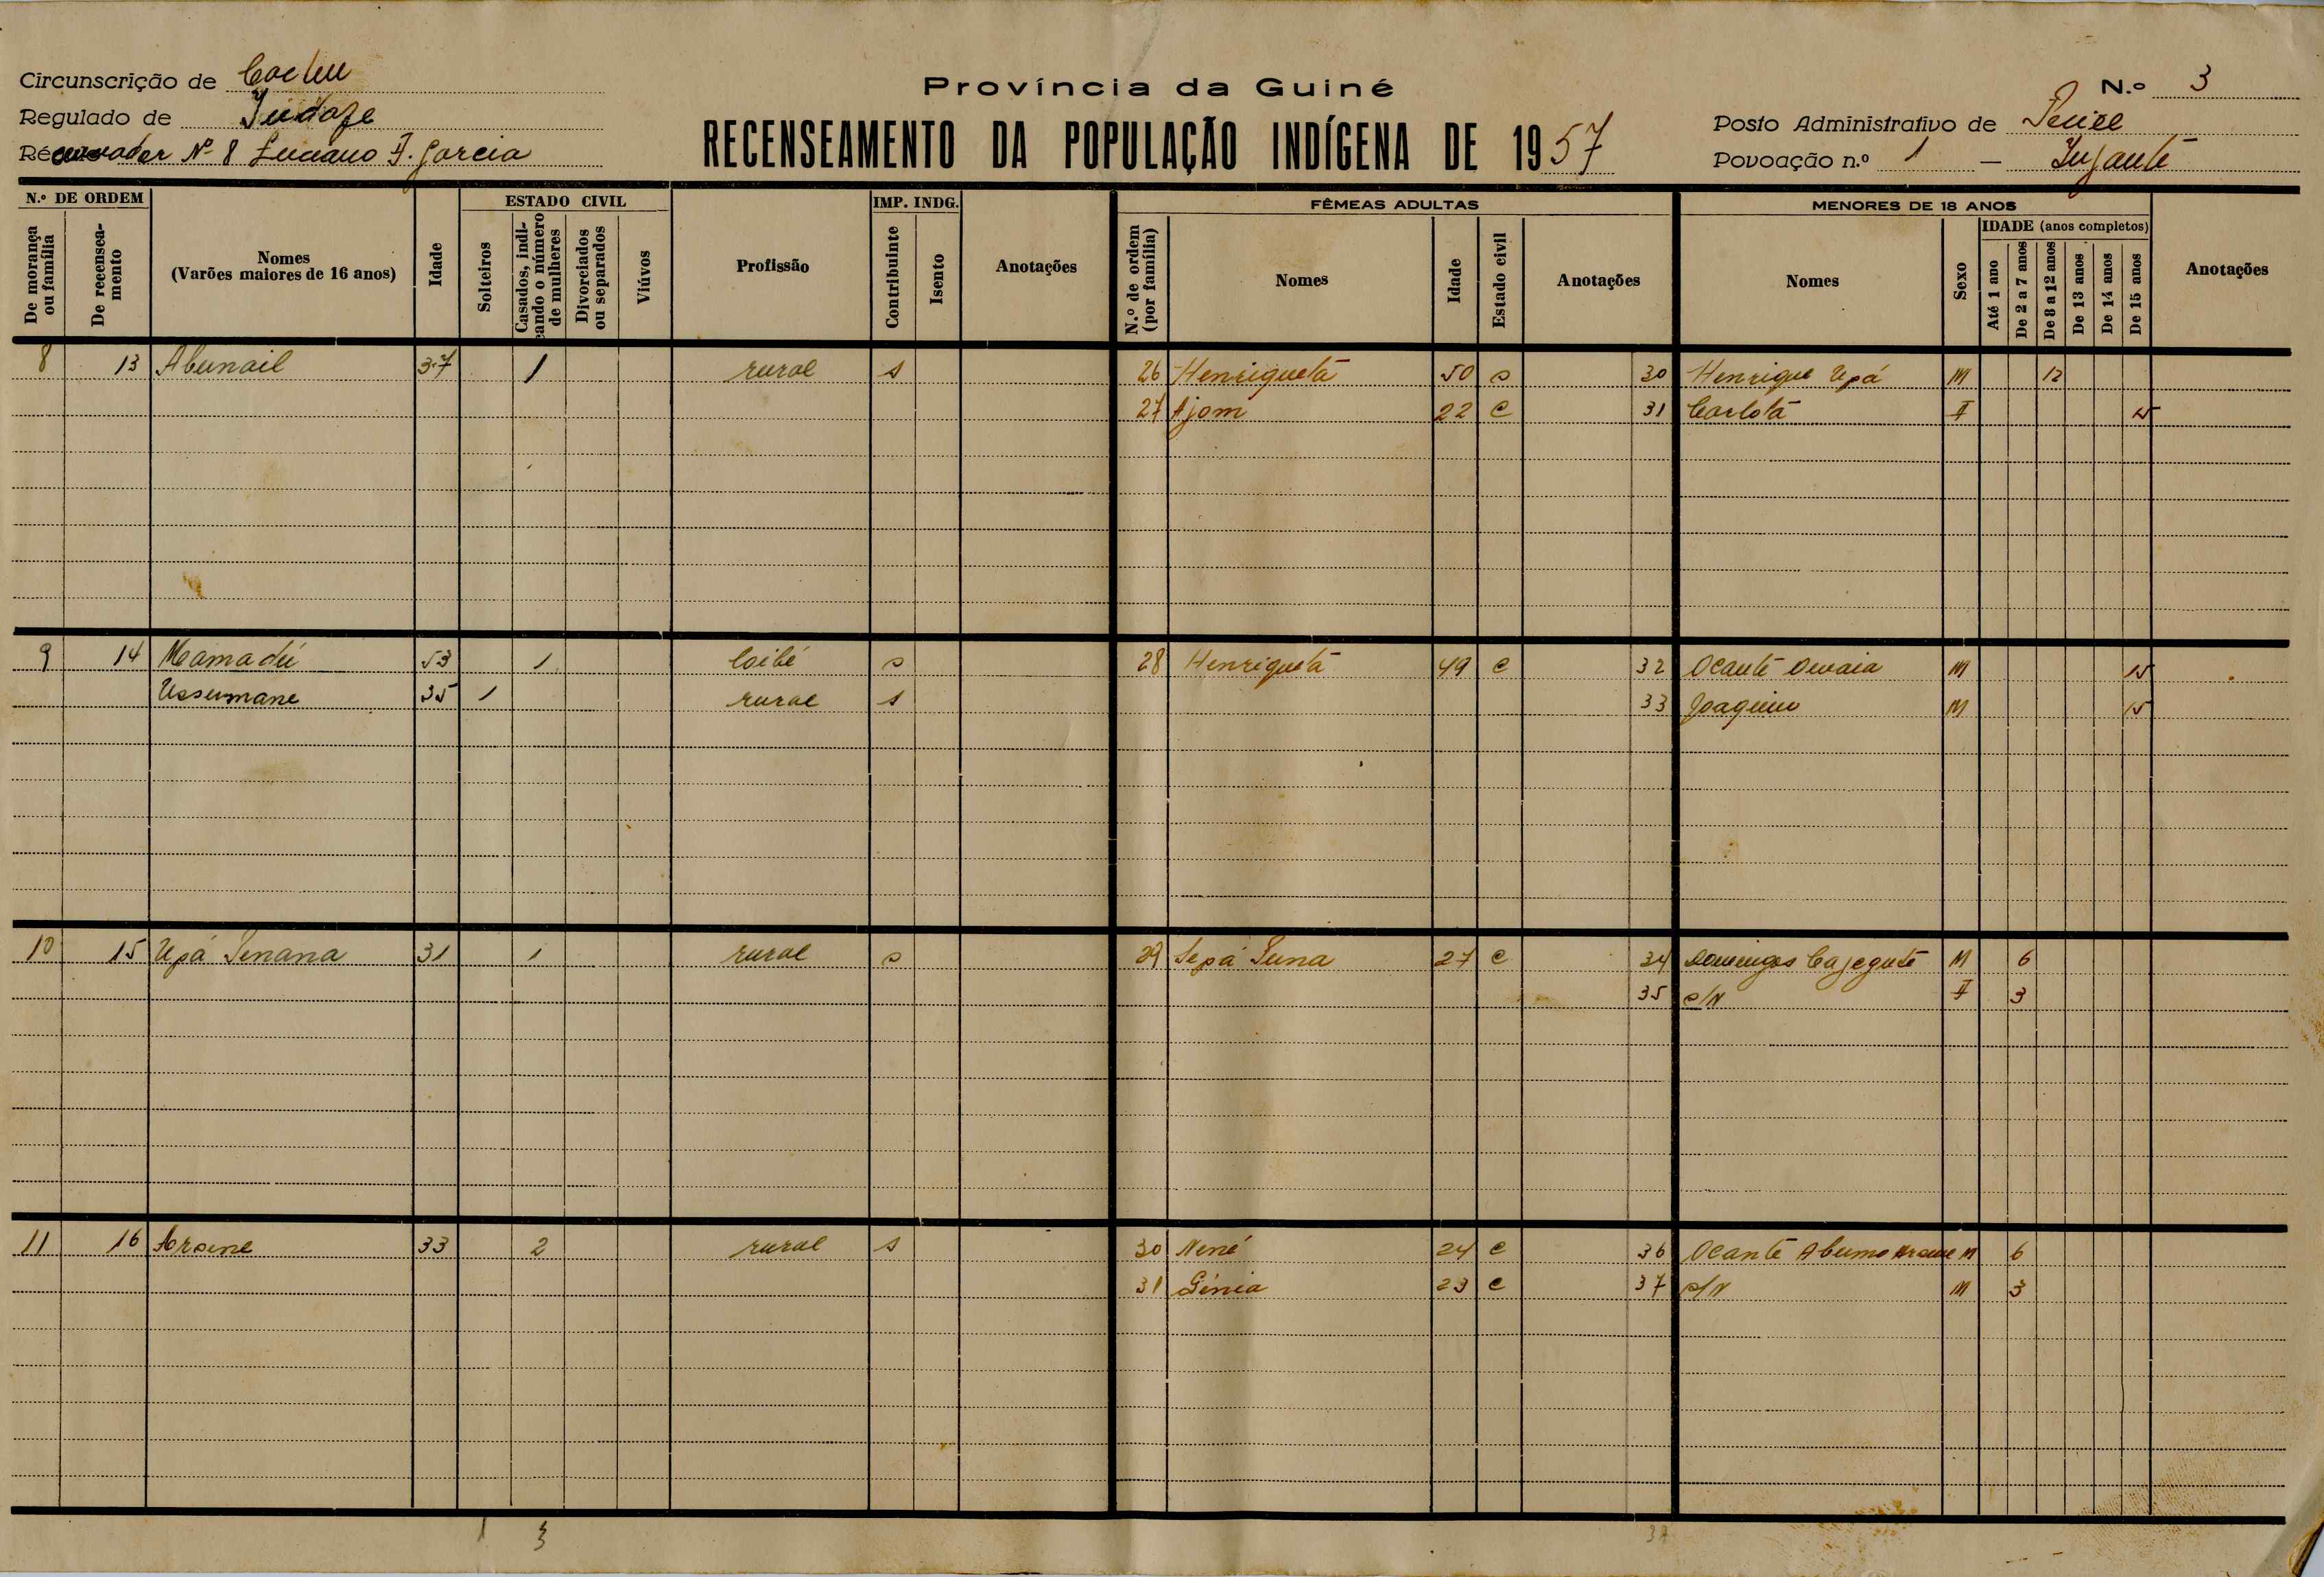 Circunscrição de Cacheu
Província da Guiné
N.º 3
Regulado de
RECENSEAMENTO DA POPULAÇÃO INDÍGENA DE 1957
Posto Administrativo de
Nº 8 Luciano F. Garcia
Povoação n.º 1 —
N.º DE ORDEM
De morança ou família
De recenseamento
Nomes
(Varões maiores de 16 anos)
Idade
ESTADO CIVIL
Solteiros
Casados, indicando o número de mulheres
Divorciados ou separados
Viúvos
Profissão
IMP. INDG.
Contribuinte
Isento
Anotações
FÊMEAS ADULTAS
N.º de ordem (por família)
Nomes
Idade
Estado civil
Anotações
MENORES DE 18 ANOS
Nomes
Sexo
IDADE (anos completos)
Até 1 ano
De 2 a 7 anos
De 8 a 12 anos
De 13 anos
De 14 anos
De 15 anos
Anotações
8 13 Abunail 37 1 rural s 26 Henriquetá 50 s 30 Henrique Upá M 12
27 Ajom 22 C 31 Carlotá F 15
9 14 Mamadú 53 1 s 28 Henriquetá 49 C 32 Ocanté M 15
Ussumane 35 1 rural s 33 Joaquim M 15
10 15 Upá 31 1 rural s 29 27 C 34 Domingos M 6
35 s/N F 3
11 16 Arsene 33 2 rural s 30 Nené 24 C 36 Ocanté M 6
31 Génia 23 C 37 s/N M 3
1 3 37